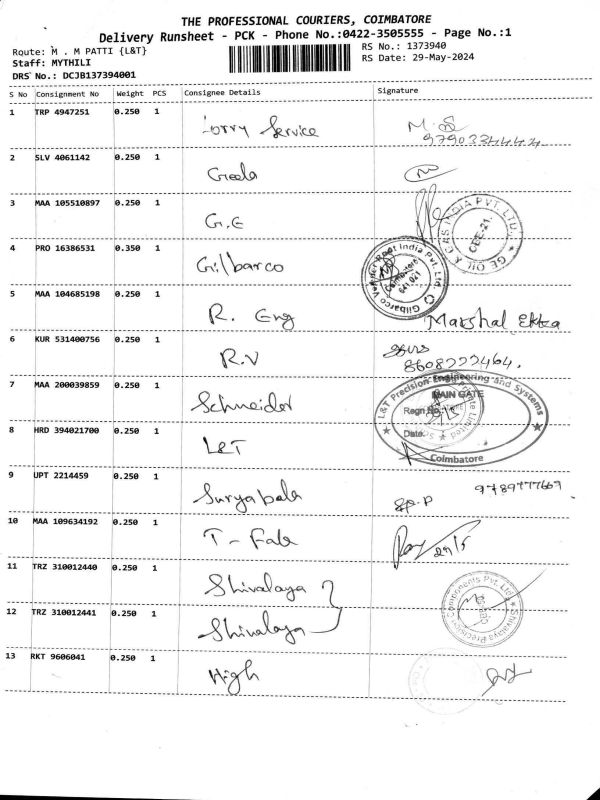 THE PROFESSIONAL COURIERS, COIMBATORE
Delivery Runsheet - PCK - Phone No.:0422-3505555 - Page No.:1
Route: M . M PATTI {L&T}
RS No.: 1373940
Staff: MYTHILI
RS Date: 29-May-2024
DRS No.: DCJB137394001
S No Consignment No Weight PCS Consignee Details Signature
1 TRP 4947251 0.250 1 Lorry Service M.S
9790334444
2 SLV 4061142 0.250 1 Geela
3 MAA 105510897 0.250 1 G.E
GE OIL & GAS INDIA PVT. LTD. CBE-21
4 PRO 16386531 0.350 1 Gilbarco
Gilbarco Veeder Root India Pvt. Ltd. Coimbatore 641 021
5 MAA 104685198 0.250 1 R. Eng Marshal Ekka
6 KUR 531400756 0.250 1 R.V
8608222464.
7 MAA 200039859 0.250 1 Schneider
L&T Precision Engineering and Systems
MAIN GATE
Regn No.:
Date:
Coimbatore
8 HRD 394021700 0.250 1 L&T
9 UPT 2214459 0.250 1 Suryabala 9789777669
10 MAA 109634192 0.250 1 T - Fab 29/5
11 TRZ 310012440 0.250 1 Shivalaya
Shivalaya Precision Components Pvt. Ltd.
12 TRZ 310012441 0.250 1 Shivalaya
13 RKT 9606041 0.250 1 High